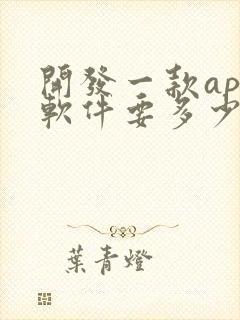 開發一款ap
軟件要多少
葉青燈